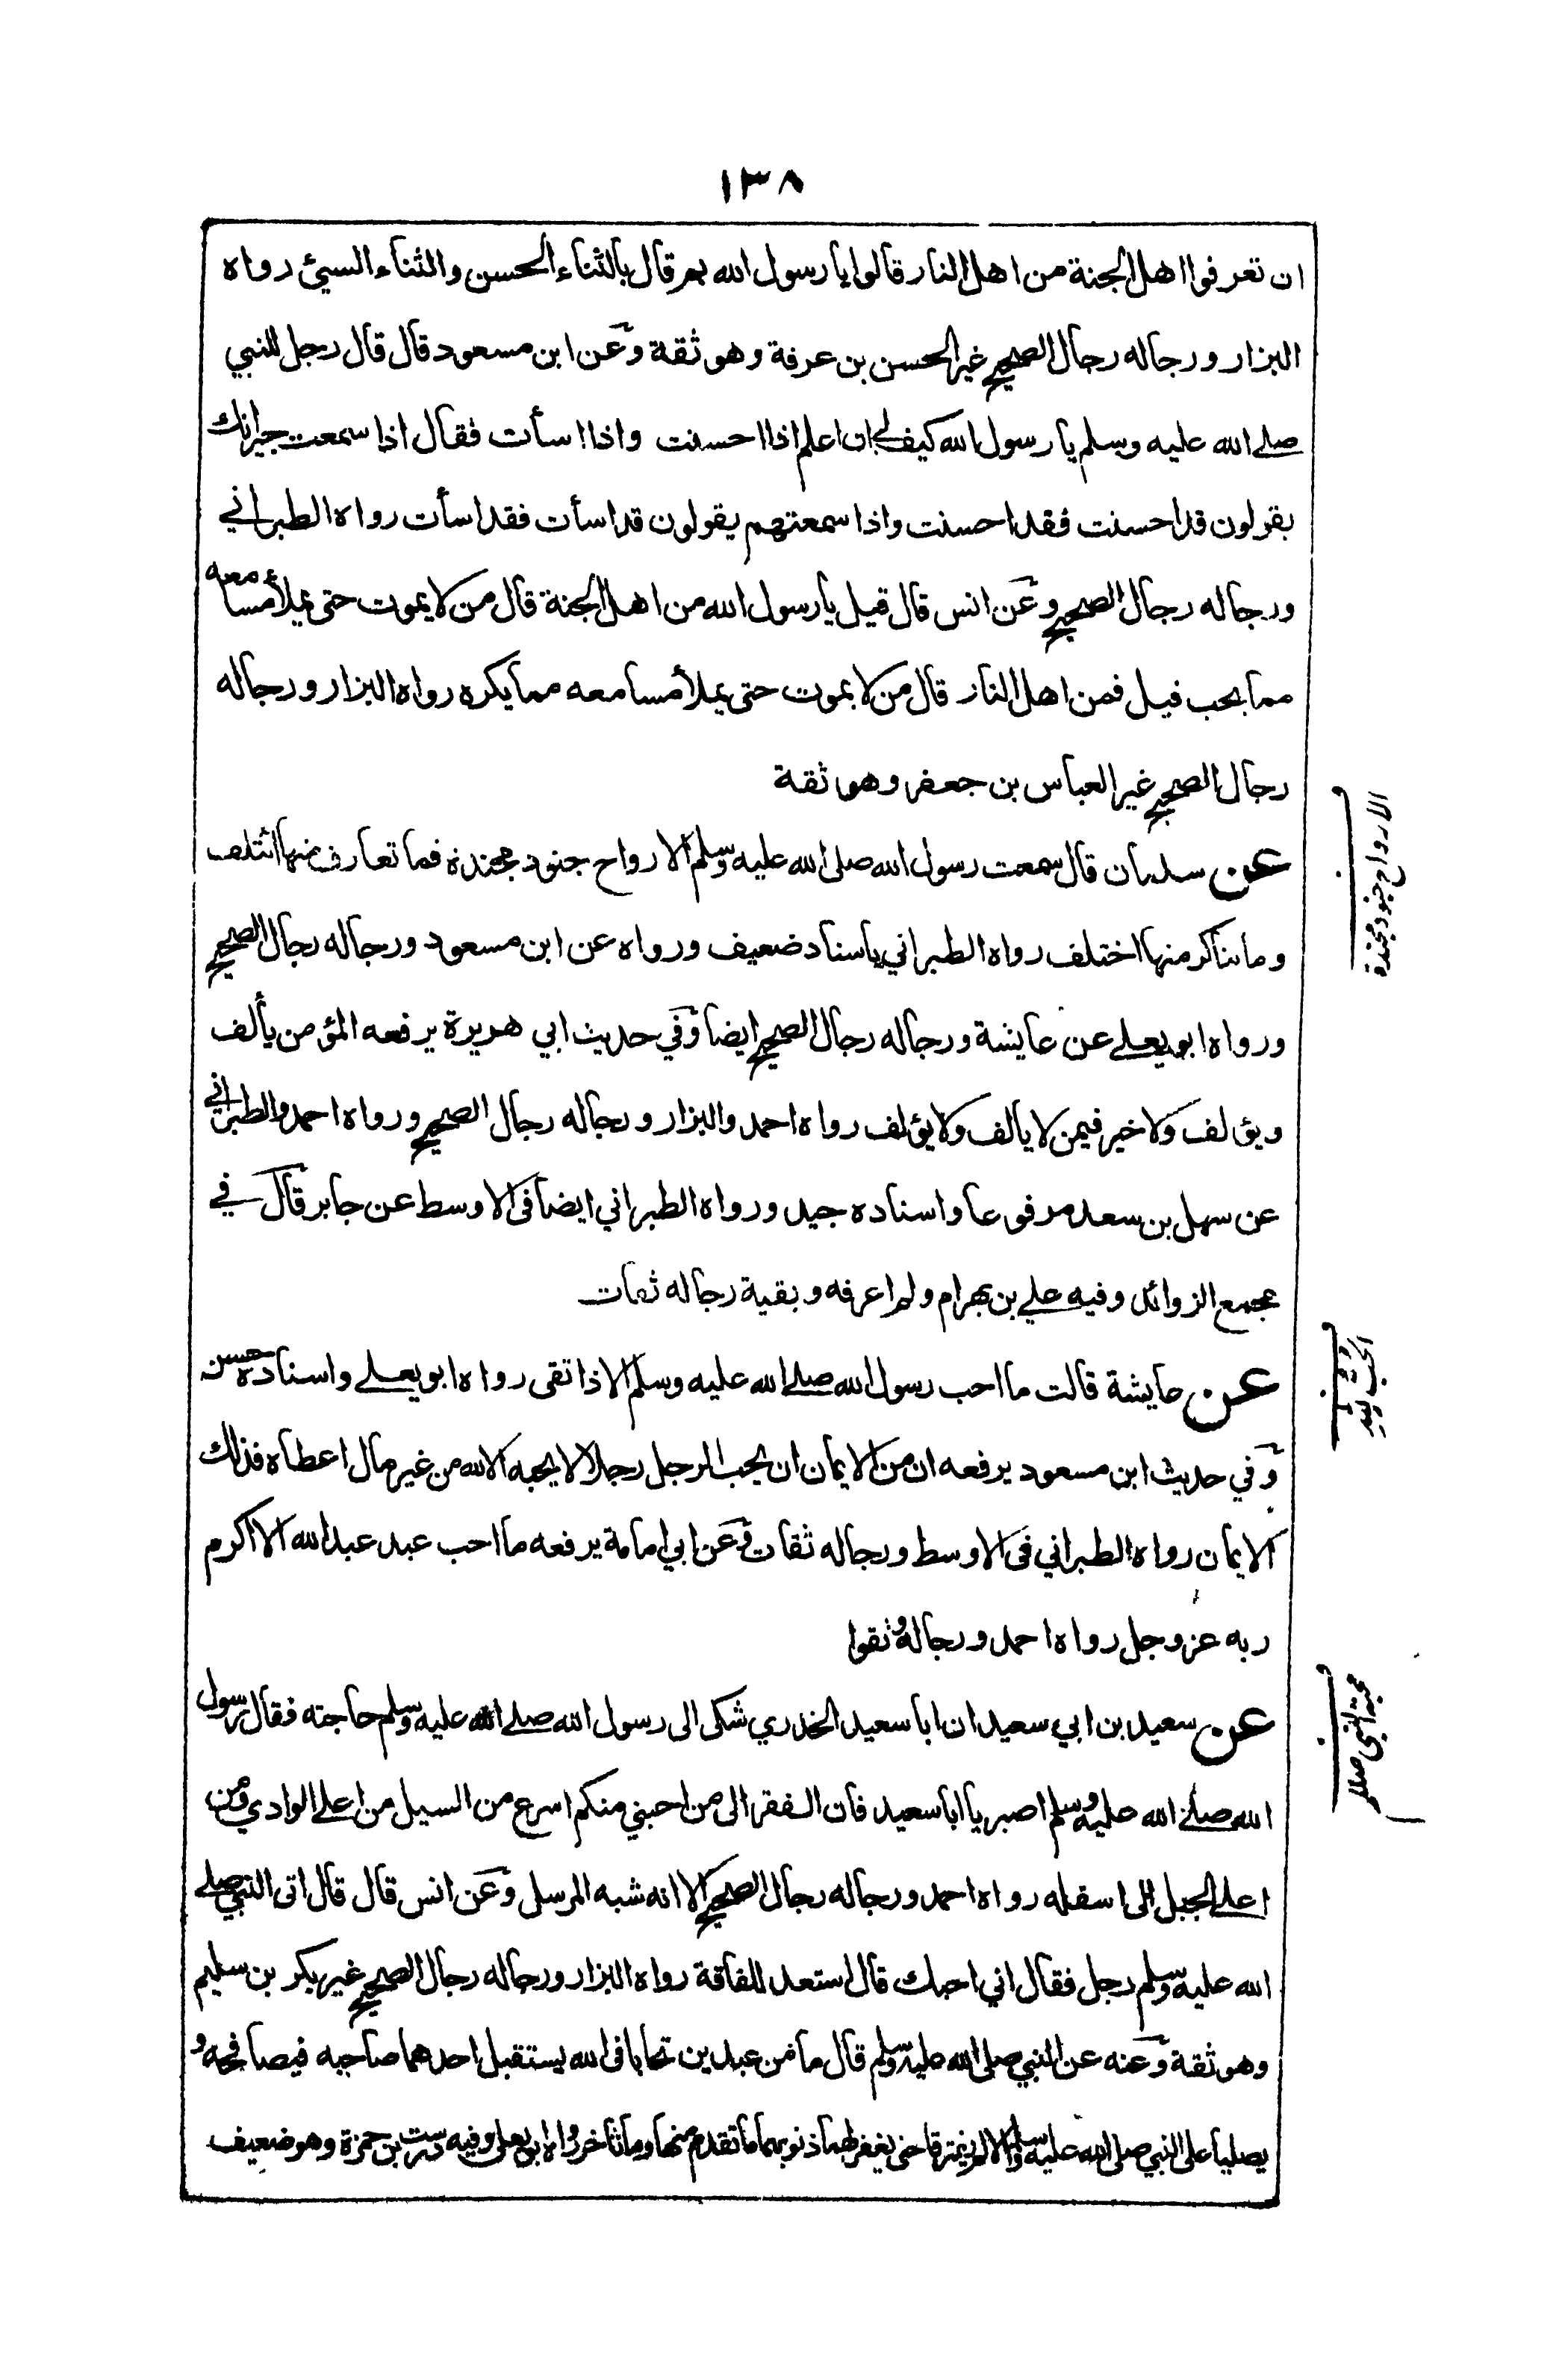 ١٣٨
ان تعرفوا اهل الجنة من اهل النار قالوا يا رسول الله بم قال بالثناء الحسن والثناء السيئ رواه
البزار ورجاله رجال الصحيح غير الحسن بن عرفة وهو ثقة وعن ابن مسعود قال قال رجل للنبي
صلى الله عليه وسلم يا رسول الله كيف لي ان اعلم اذا احسنت واذا اسأت فقال اذا سمعت جيرانك
يقولون قد احسنت فقد احسنت واذا سمعتهم يقولون قد اسأت فقد اسأت رواه الطبراني
ورجاله رجال الصحيح وعن انس قال قيل يا رسول الله من اهل الجنة قال من لا يموت حتى يملأ مسامعه
مما يحب قيل فمن اهل النار قال من لا يموت حتى يملأ مسامعه مما يكره رواه البزار ورجاله
رجال الصحيح غير العباس بن جعفر وهو ثقة
عن سلمان قال سمعت رسول الله صلى الله عليه وسلم الارواح جنود مجندة فما تعارف منها ائتلف
وما تناكر منها اختلف رواه الطبراني باسناد ضعيف ورواه عن ابن مسعود ورجاله رجال الصحيح
ورواه ابو يعلى عن عايشة ورجاله رجال الصحيح ايضا وفي حديث ابي هريرة يرفعه المؤمن يألف
ويؤلف ولا خير فيمن لا يألف ولا يؤلف رواه احمد والبزار ورجاله رجال الصحيح ورواه احمد والطبراني
عن سهل بن سعد مرفوعا واسناده جيد ورواه الطبراني ايضا في الاوسط عن جابر قال في
مجمع الزوائد وفيه علي بن بهرام ولم اعرفه وبقية رجاله ثقات
عن عايشة قالت ما احب رسول الله صلى الله عليه وسلم الا ذا تقى رواه ابو يعلى واسناده حسن
وفي حديث ابن مسعود يرفعه ان من الايمان ان يحب الرجل رجلا لا يحبه الا لله من غير مال اعطاه فذلك
الايمان رواه الطبراني في الاوسط ورجاله ثقات وعن ابي امامة يرفعه ما احب عبد عبدا لله الا اكرم
ربه عز وجل رواه احمد ورجاله وثقوا
عن سعيد بن ابي سعيد ان ابا سعيد الخدري شكى الى رسول الله صلى الله عليه وسلم حاجته فقال رسول
الله صلى الله عليه وسلم اصبر يا ابا سعيد فان الفقر الى من احبني منكم اسرع من السيل من اعلى الوادي ومن
اعلى الجبل الى اسفله رواه احمد ورجاله رجال الصحيح الا انه شبه المرسل وعن انس قال قال اتى النبي صلى
الله عليه وسلم رجل فقال اني احبك قال استعد للفاقة رواه البزار ورجاله رجال الصحيح غير بكر بن سليم
وهو ثقة وعنه عن النبي صلى الله عليه وسلم قال ما من عبدين تحابا في الله يستقبل احدهما صاحبه فيصافحه و
يصليا على النبي صلى الله عليه وسلم الا لم يفترقا حتى يغفر لهما ذنوبهما ما تقدم منها وما تأخر رواه ابو يعلى وفيه درست بن حمزة وهو ضعيف
الارواح جنود مجندة
محبة النبي صللم